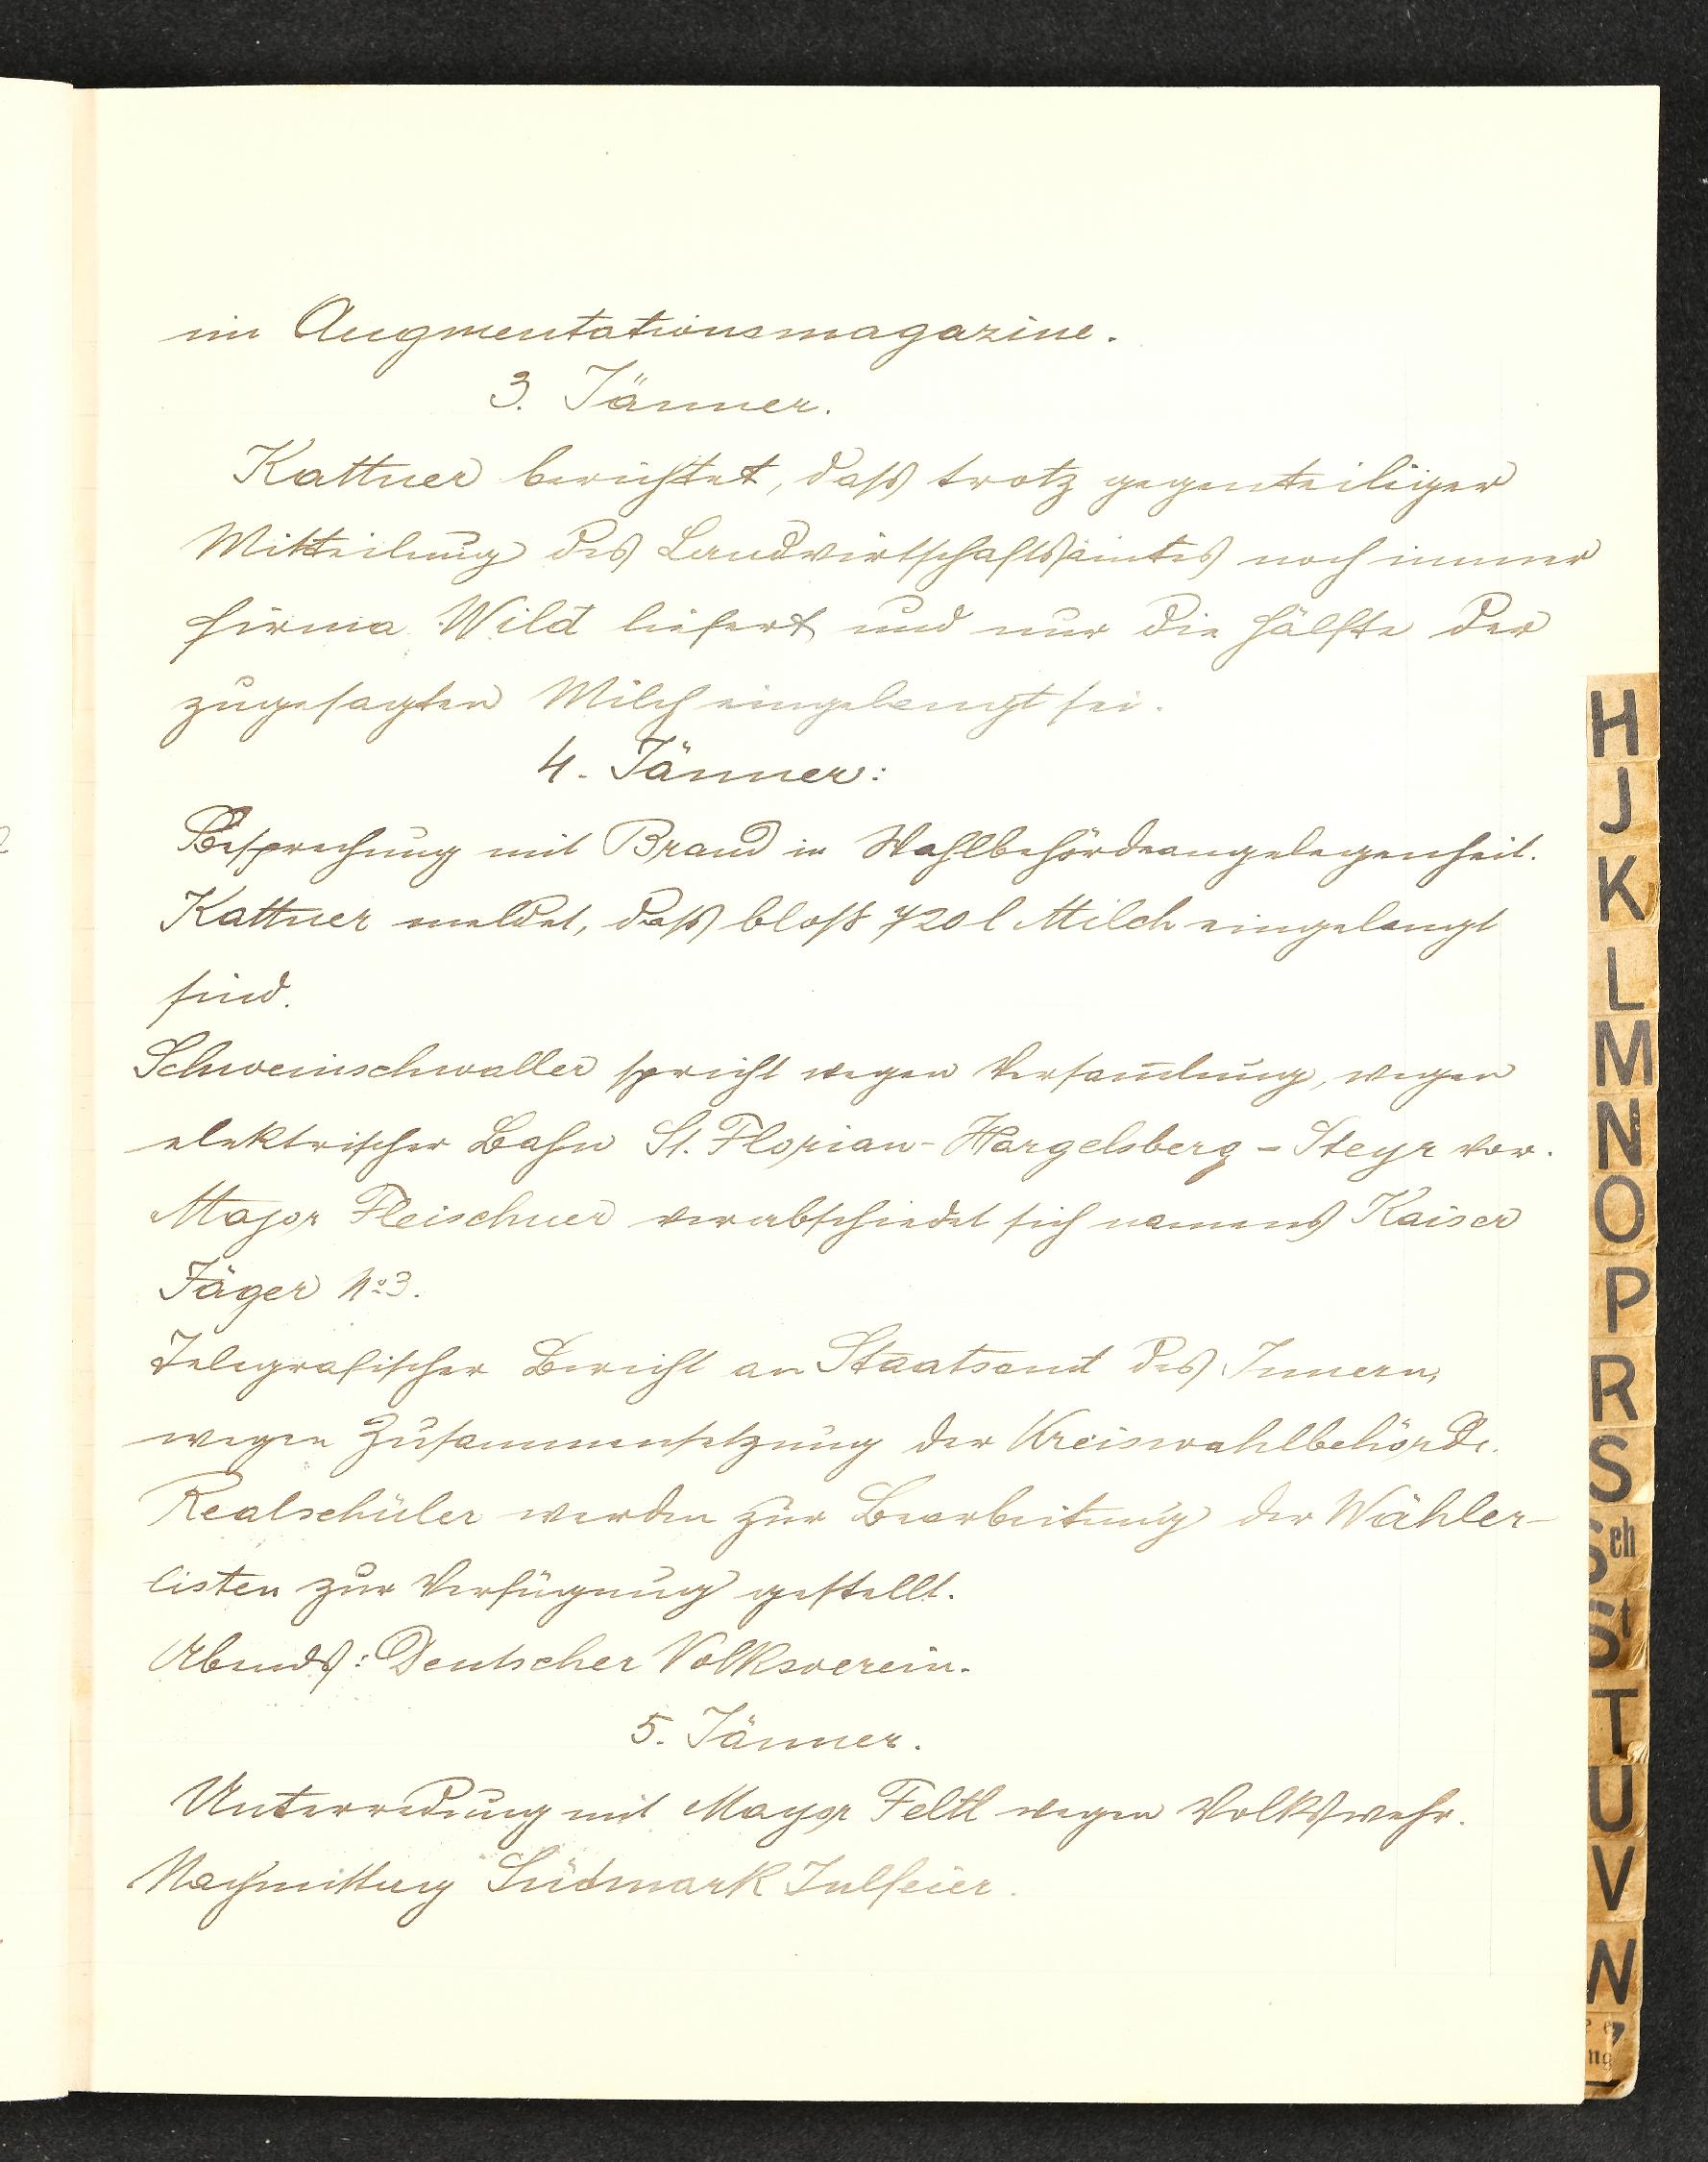 im Augmentationsmagazine.
3. Jänner.
Kattner berichtet, dass trotz gegenteiliger
Mitteilung des Landwirtschaftsamtes noch immer
Firma Wild liefert und nur die Hälfte der
zugesagten Milch eingelangt sei.
4. Jänner:
Besprechung mit Brand in Wahlbehördeangelegenheit.
Kattner meldet, dass bloß 720 l Milch eingelangt
sind.
Schweinschwaller spricht wegen Versam̄lung, wegen
elektrischer Bahn St. Florian-Hargelsberg-Steyr vor.
Major Fleischner verabschiedet sich namens Kaiser
Jäger No 3.
Telegrafischer Bericht an Staatsamt des Innern,
wegen Zusammensetzung der Kreiswahlbehörde.
Realschüler werden zur Bearbeitung der Wähler-
listen zur Verfügung gestellt.
Abends: Deutscher Volksverein.
5. Jänner.
Unterredung mit Mayor Feltl wegen Volkswehr.
Nachmittag Südmark Julfeier.
H
J
K
L
M
N
O
P
R
S
Sch
St
T
U
V
W